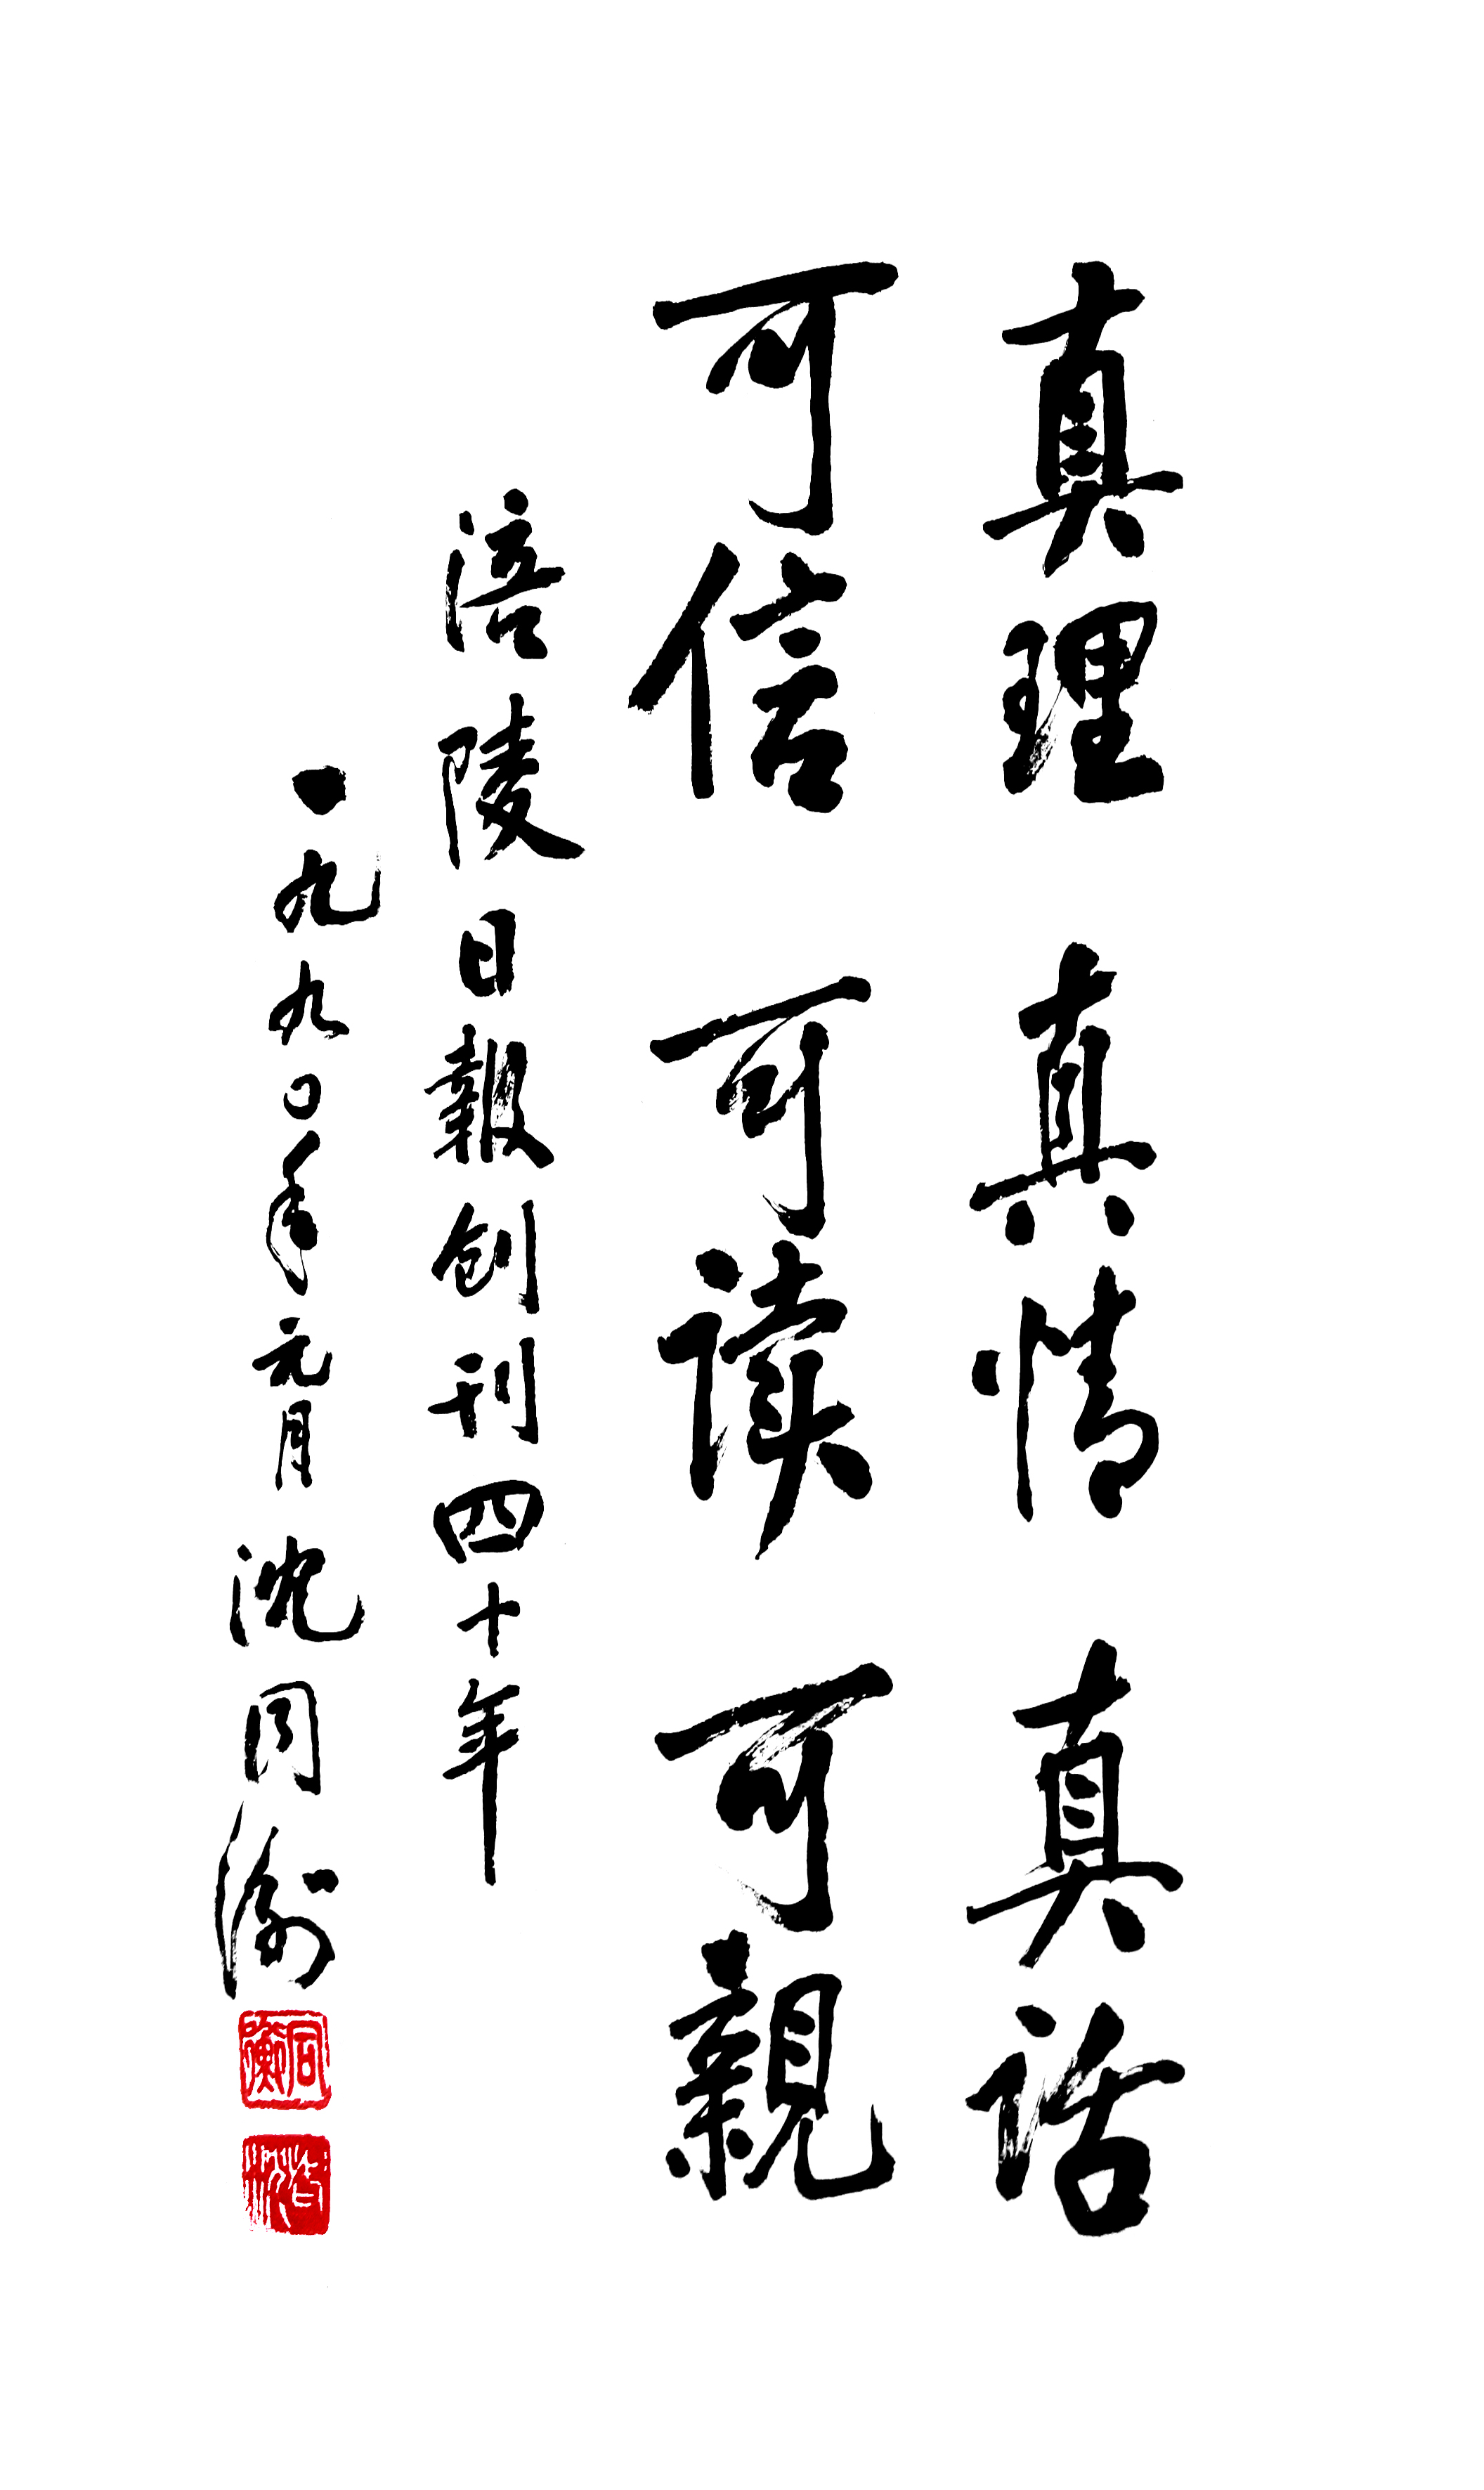 真理 真情 真话
可信 可读 可親
涪陵日報创刊四十年
一九九〇年元月 沈同衡
同衡